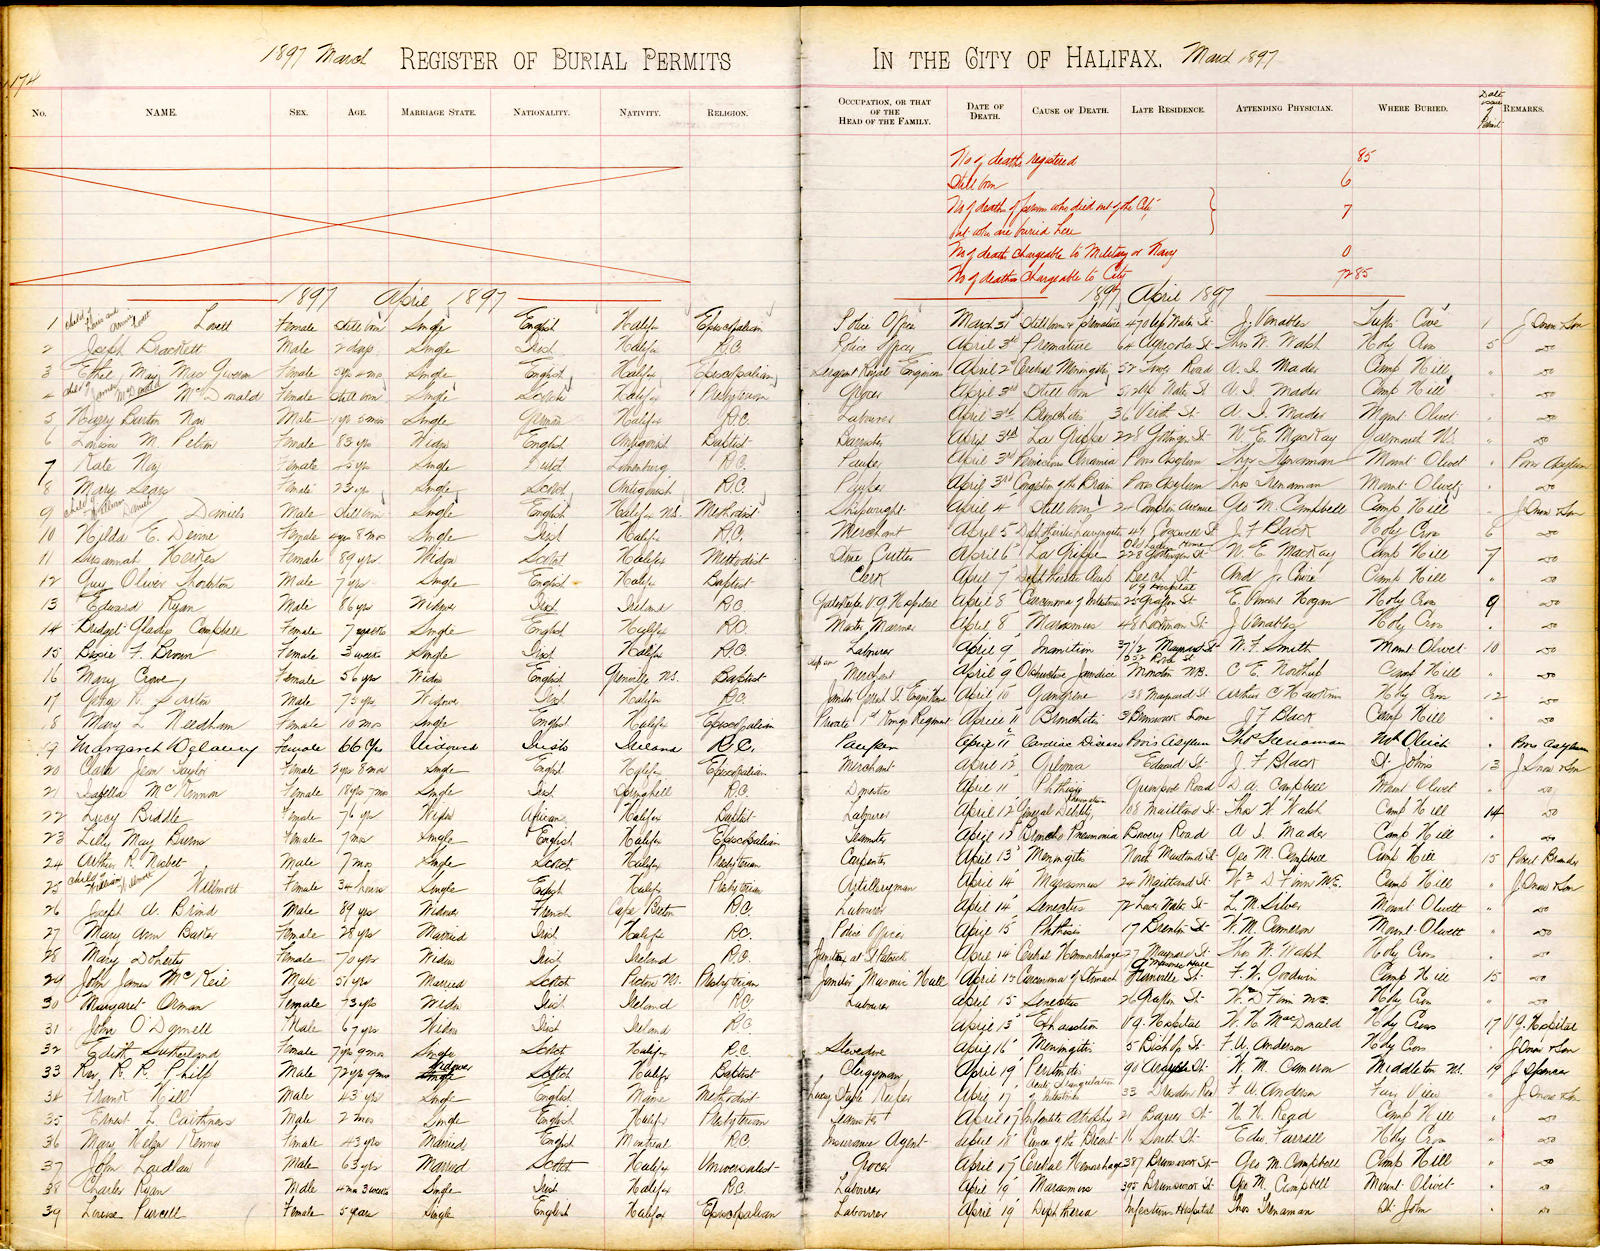 1897 March REGISTER OF BURIAL PERMITS IN THE CITY OF HALIFAX. March 1897
174
No. NAME. SEX. AGE. MARRIAGE STATE. NATIONALITY. NATIVITY. RELIGION. OCCUPATION, OR THAT OF THE HEAD OF THE FAMILY. DATE OF DEATH. CAUSE OF DEATH. LATE RESIDENCE. ATTENDING PHYSICIAN. WHERE BURIED. Date issue of Permit REMARKS.
No of deaths registered 85
Still born 6
No of deaths of persons who died out of the City
but who are buried here 7
No of death chargeable to Military or Navy 0
No of deaths chargeable to City 72 85
1897 April 1897 1897 April 1897
1 Child of and Annie Lovett Lovett Female Still born Single English Halifax Episcopalian Police Officer March 31st Still born & premature 470 Up Water St. J. Venables Tufts Cove 1 J Snow & Son
2 Joseph Brackett Male 2 days Single Irish Halifax R.C. Police Officer April 3rd Premature 64 Agricola St. Thos W. Walsh Holy Cross 5 do
3 Ethel May Female 5 yrs 4 mos Single English Halifax Episcopalian Sergeant Royal Engineers April 2 Cerebral Meningitis 52 Tower Road A. I. Mader Camp Hill " do
4 Child of James McDonald McDonald Female Still born Single Scotch Halifax Presbyterian Grocer April 3rd Still born Up Water St. A. I. Mader Camp Hill " do
5 Henry Burton Male 1 yr 5 mos Single German Halifax R.C. Labourer April 3rd Bronchitis 36 Veith St. A. I. Mader Mount Olivet " do
6 Louisa M. Female 83 yrs Widow English Antigonish Baptist Barrister April 3rd La Grippe 228 Gottingen St. W. E. MacKay Yarmouth N.S. " do
7 Kate Female 45 yrs Single Lunenburg R.C. Pauper April 3rd Pernicious Anaemia Poors Asylum Thos Trenaman Mount Olivet " Poors Asylum
8 Mary Sears Female 23 yrs Single Scotch Antigonish R.C. Pauper April 3rd Congestion of the Brain Poors Asylum Thos Trenaman Mount Olivet " do
9 Child of William Daniels Daniels Male Still born Single English Halifax N.S. Methodist Shipwright April 4 Still born 24 Compton Avenue Geo M. Campbell Camp Hill " J Snow & Son
10 Hilda E. Female 4 yrs 8 mos Single Irish Halifax R.C. Merchant April 5 Diphtheritic Laryngitis 49 Cogswell St. J F Black Holy Cross 6 do
11 Susannah Female 89 yrs Widow Scotch Halifax Methodist Cutter April 6 La Grippe Old Ladies Home 228 Gottingen St. W. E. MacKay Camp Hill 7 do
12 Guy Oliver Male 7 yrs Single English Halifax Baptist Clerk April 7 Diphtheritic Croup Beech St. And. J. Camp Hill " do
13 Edward Ryan Male 86 yrs Widower Irish Ireland R.C. Gatekeeper V.G. Hospital April 8 Carcinoma of Intestine V.G. Hospital 25 Grafton St. E. Vincent Hogan Holy Cross 9 do
14 Bridget Gladys Campbell Female 7 weeks Single English Halifax R.C. Master Mariner April 8 Marasmus 48 Lockman St. J. Venables Holy Cross " do
15 Bessie F. Brown Female 3 weeks Single Irish Halifax R.C. Labourer April 9 Inanition 37 1/2 Maynard St. W. F. Smith Mount Olivet 10 do
16 Mary Crowe Female 56 yrs Widow English Grenville N.S. Baptist Merchant April 9 Obstructive Jaundice Moncton N.B. C E. Northup Camp Hill " do
17 Male 75 yrs Widower Irish Halifax R.C. Janitor St. Engine House April 10 Gangrene 138 Maynard St. Arthur C Hawkins Holy Cross 12 do
18 Mary L. Needham Female 10 mos Single English Halifax Episcopalian Private 1st Kings Regiment April 11 Bronchitis 3 Brunswick Lane J F Black Camp Hill " do
19 Margaret Delaney Female 66 yrs Widowed Irish Ireland R.C. Pauper April 11 Cardiac Disease Poors Asylum Thos Trenaman Mt Olivet " Poors Asylum
20 Clara Jean Taylor Female 2 yrs 8 mos Single English Halifax Episcopalian Merchant April 12 Edward St. J. F Black St. Johns 13 J Snow & Son
21 Isabella McKinnon Female 18 yrs 7 mos Single Irish R.C. Domestic April 11 Phthisis Greenwood Road D A. Campbell Mount Olivet " do
22 Lucy Biddle Female 76 yrs Widow African Halifax Baptist Labourer April 12 General Debility 108 Maitland St. Thos W Walsh Camp Hill 14 do
23 Lilly May Burns Female 7 mos Single English Halifax Episcopalian Teamster April 12 Broncho Pneumonia Bowery Road A I. Mader Camp Hill " do
24 Arthur R. Nisbet Male 7 mos Single Scotch Halifax Presbyterian Carpenter April 13 Meningitis North Maitland St. Geo M. Campbell Camp Hill 15
25 Child of William Willmott Willmott Female 34 hours Single English Halifax Presbyterian Artilleryman April 14 Marasmus 24 Maitland St. Wm D Finn M.E. Camp Hill " J Snow & Son
26 Joseph A. Brind Male 89 yrs Widower French Cape Breton R.C. Labourer April 14 Senectus 72 Lower Water St. L M. Silver Mount Olivett " do
27 Mary Ann Baxter Female 28 yrs Married Irish Halifax R.C. Police Officer April 15 Phthisis 17 Brenton St. W. M. Cameron Mount Olivett " do
28 Mary Doherty Female 70 yrs Widow Irish Ireland R.C. Janitor at St Patricks April 14 Cerebral Hemorrhage 27 Maynard St. Thos W. Walsh Holy Cross " do
29 John James McNeil Male 51 yrs Married Scotch Pictou N.S. Presbyterian Janitor Masonic Hall April 15 Carcinoma of Stomach Masonic Hall Granville St. F. W. Goodwin Camp Hill 15 do
30 Margaret Orman Female 73 yrs Widow Irish Ireland R.C. Labourer April 15 Senectus 26 Grafton St. Wm D Finn M.E. Holy Cross " do
31 John O'Donnell Male 67 yrs Widow Irish Ireland R.C. April 13 Exhaustion V.G. Hospital W. H. MacDonald Holy Cross 17 V.G. Hospital
32 Edith Sutherland Female 7 yrs 9 mos Single Scotch Halifax R.C. Stevedore April 16 Meningitis 5 Bishop St. F. U. Anderson Holy Cross " J Snow & Son
33 Rev. R. R. Philp Male 72 yrs 9 mos Single Widower Scotch Halifax Baptist Clergyman April 19 Peritonitis 91 St. W. M. Cameron Middleton N.S. 19 J Spencer
34 Frank Hill Male 43 yrs Single English Maine Methodist Livery Stable Keeper April 17 Acute Strangulation of Intestine 33 Dresden Row F. U. Anderson Fair View " J Snow & Son
35 Ernest L. Male 2 mos Single English Halifax Presbyterian Teamster April 17 Infantile Atrophy 21 St. H. H. Read Camp Hill " do
36 Mary Helen Kenny Female 43 yrs Married English Montreal R.C. Insurance Agent April 18 Cancer of the Breast 16 South St. Edw. Farrell Holy Cross " do
37 John Laidlaw Male 63 yrs Married Scotch Halifax Universalist Grocer April 17 Cerebral Hemorrhage 387 Brunswick St. Geo M. Campbell Camp Hill " do
38 Charles Ryan Male 4 mos 3 weeks Single Irish Halifax R.C. Labourer April 19 Marasmus 395 Brunswick St. Geo M. Campbell Mount Olivet " do
39 Louise Purcell Female 5 years Single English Halifax Episcopalian Labourer April 19 Diphtheria Infectious Hospital Thos Trenaman St. John " do